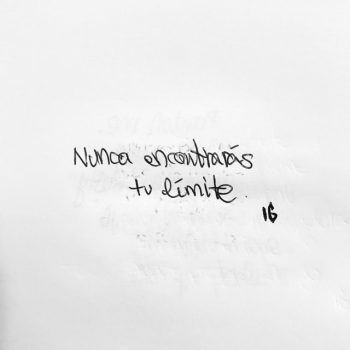 Nunca encontrarás
tu límite.
IG